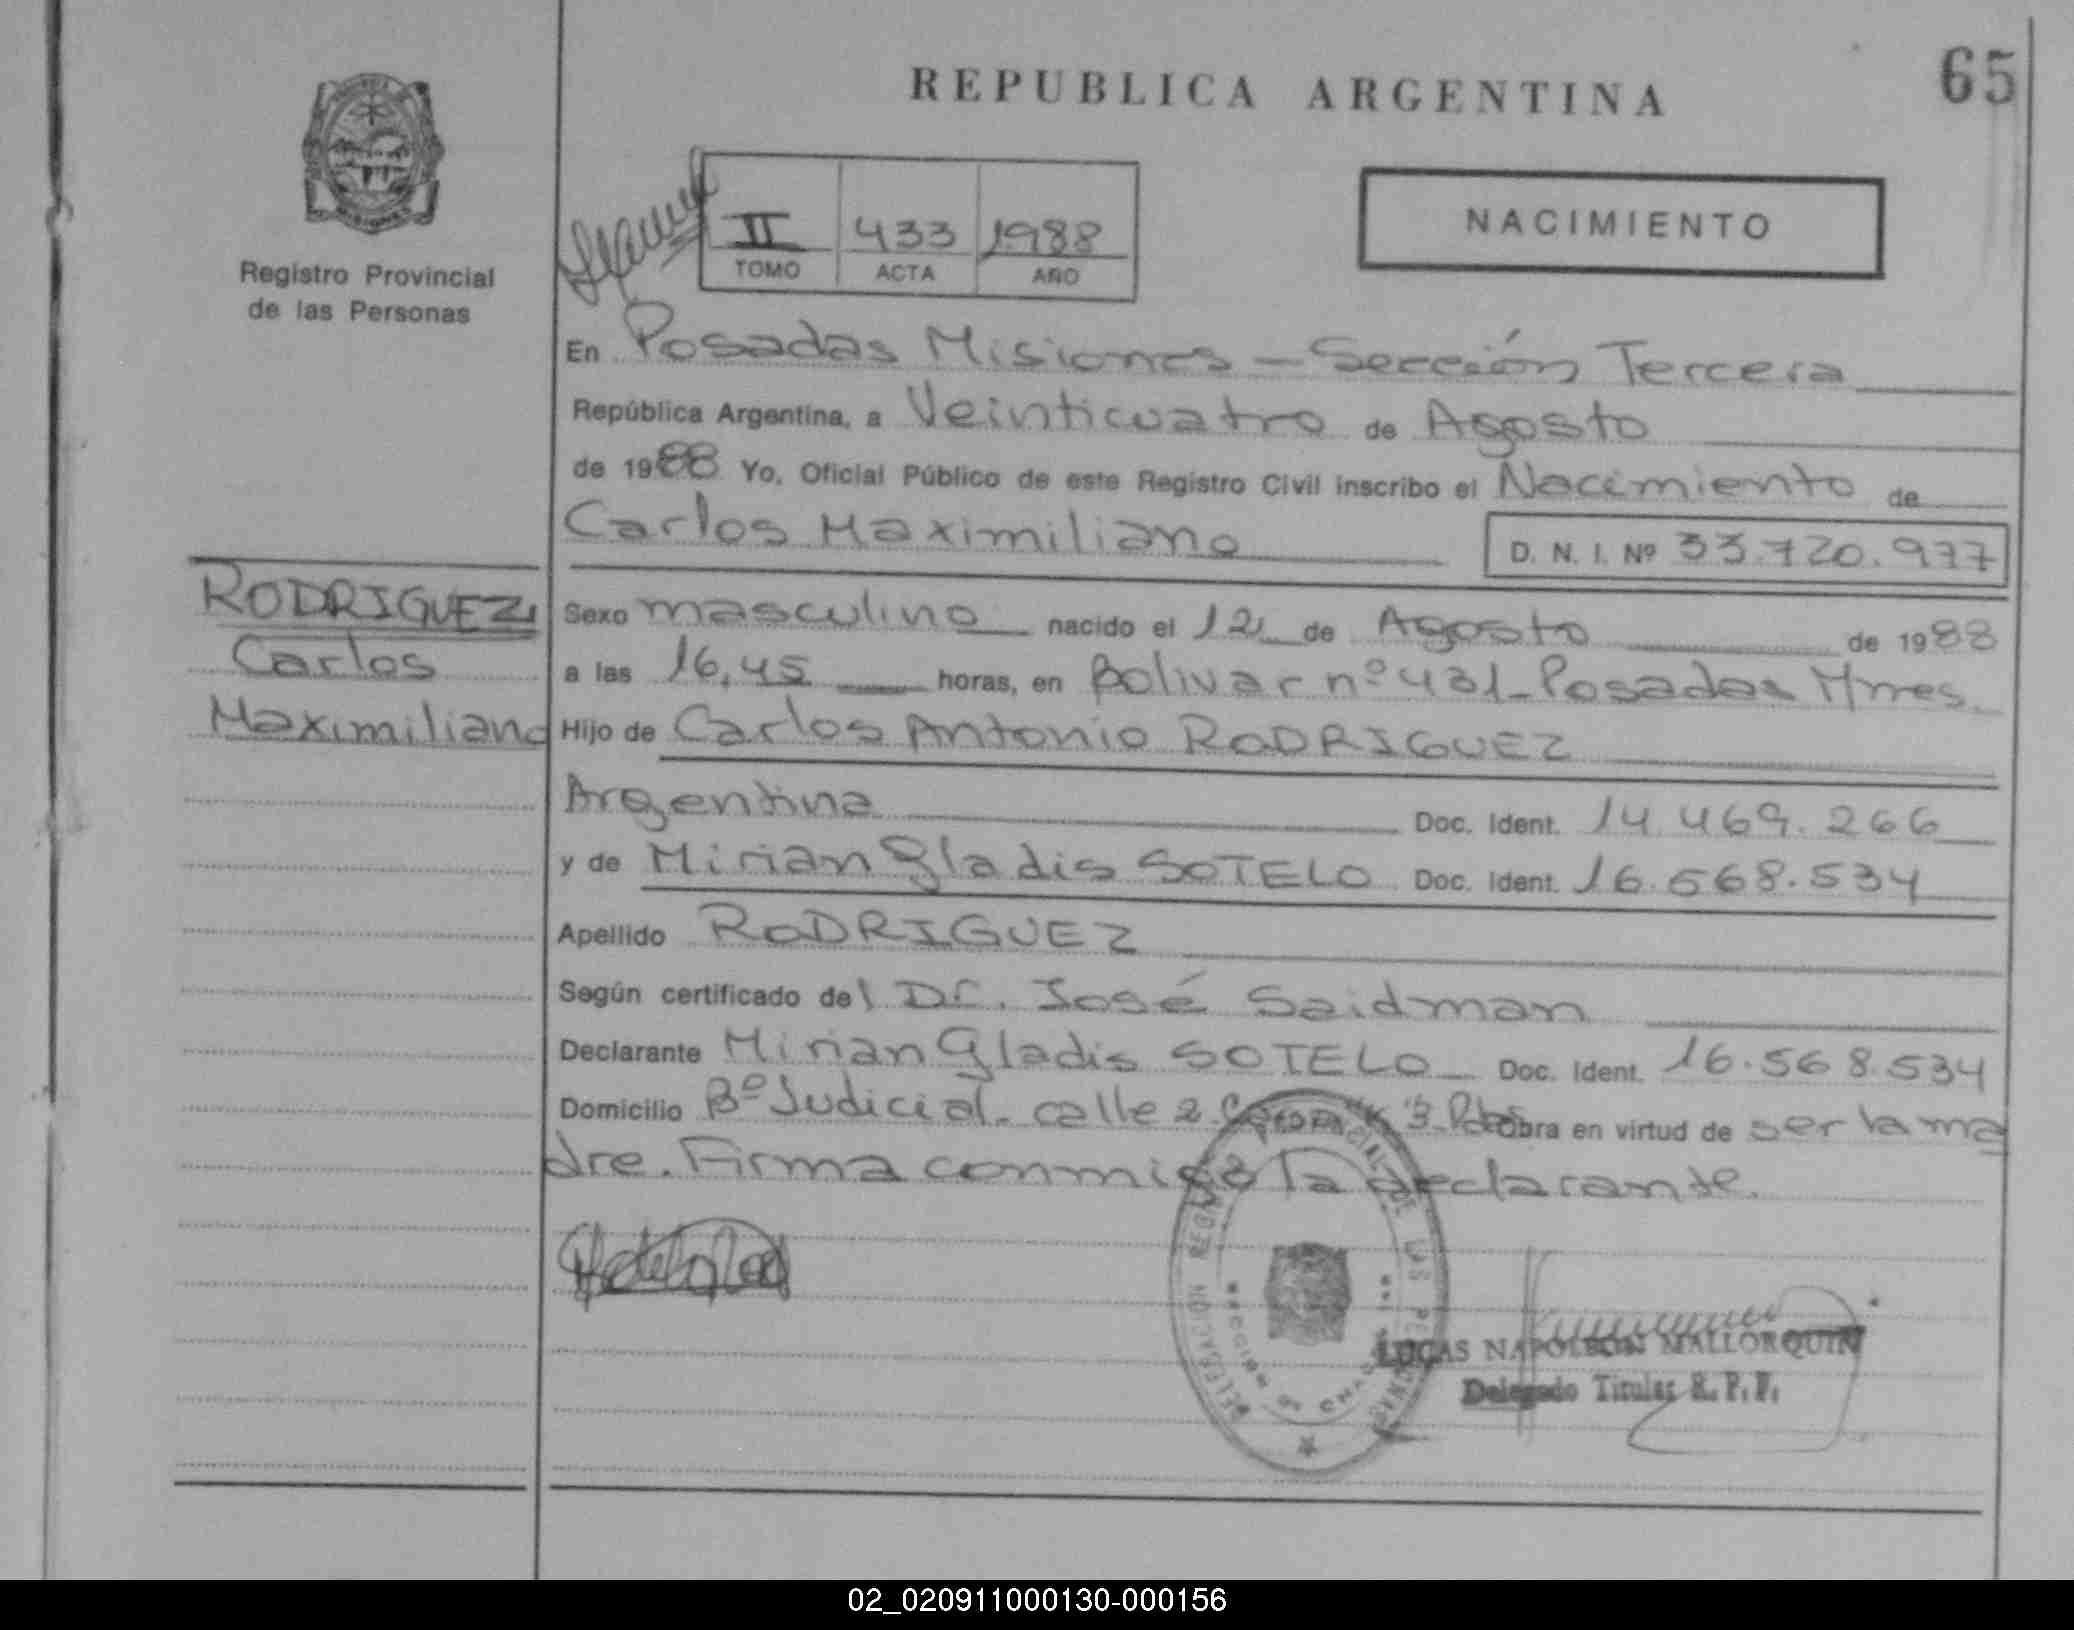 REPUBLICA ARGENTINA
65
MISIONES
Registro Provincial
de las Personas
II 433 1988
TOMO ACTA AÑO
NACIMIENTO
En Posadas Misiones - Sección Tercera
República Argentina, a Veinticuatro de Agosto
de 1988 Yo, Oficial Público de este Registro Civil inscribo el Nacimiento de
Carlos Maximiliano D. N. I. Nº 33.720.977
RODRIGUEZ
Carlos
Maximiliano
Sexo masculino nacido el 12 de Agosto de 1988
a las 16,45 horas, en Bolivar nº 431 - Posadas Mnes.
Hijo de Carlos Antonio RODRIGUEZ
Argentina Doc. Ident. 14.469.266
y de Mirian Gladis SOTELO Doc. Ident. 16.568.534
Apellido RODRIGUEZ
Según certificado del Dr. José Saidman
Declarante Mirian Gladis SOTELO Doc. Ident. 16.568.534
Domicilio Bº Judicial - calle 2 3 Pdas Obra en virtud de ser la ma
dre. Firma conmigo la declarante.
DELEGACION REGISTRO PROVINCIAL DE LAS PERSONAS
LUCAS NAPOLEON MALLORQUIN
Delegado Titular R. P. P.
02_020911000130-000156